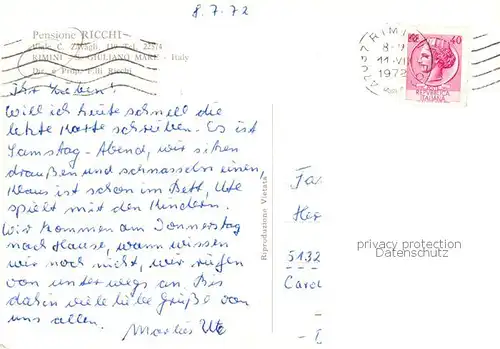 8.7.72
Pensione RICCHI
Viale C. Zavagli, Tel. 225/4
RIMINI - S. GIULIANO MARE - Italy
Dir. e Prop. F.lli Ricchi
RIMINI
8-9
11-VII
1972
40
REPUBBLICA
ITALIANA
Ihr Lieben!
Will ich heute schnell die
letzte Karte schreiben. Es ist
Samstag-Abend, wir sitzen
draußen und schnasseln einen,
Klaus ist schon im Bett, Ute
spielt mit den Kindern.
Wir kommen am Donnerstag
nach Hause, wann wissen
wir noch nicht, wir rufen
von unterwegs an. Bis
dahin viele liebe Grüße von
uns allen.
Marlies Ute
Riproduzione Vietata
Fa
Her
5132
privacy protection
Datenschutz